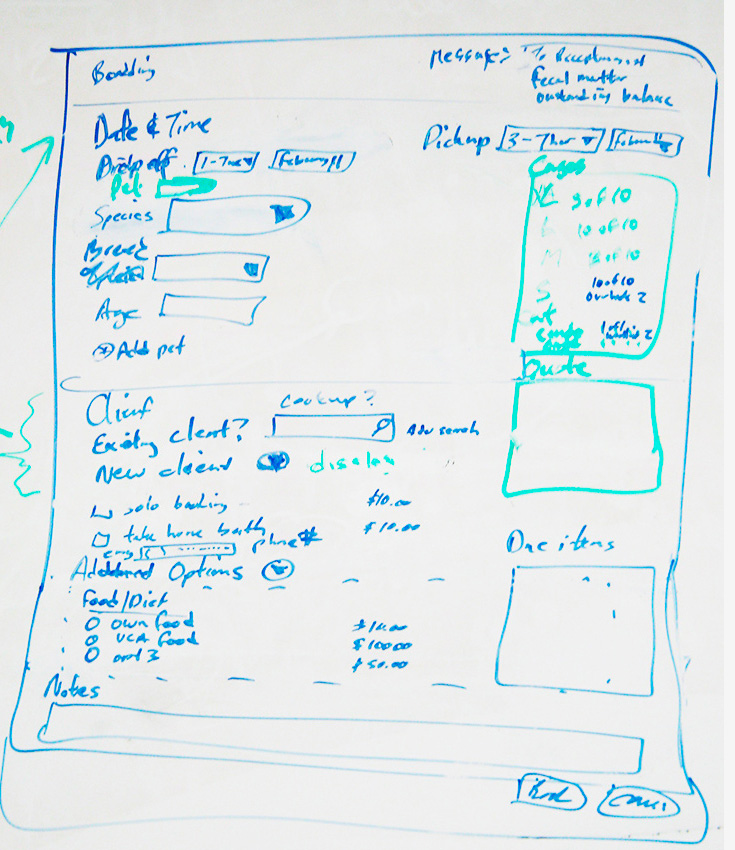 Boarding
Message: To Receptionist
fecal matter
outstanding balance
Date & Time
Drop off 1-Tue February 11
Pickup 3-Thur
Pet
Species
Breed
Age
Add pet
Cages
XL 3 of 10
L 10 of 10
M 8 of 10
S 10 of 10
Cat
Quote
Client
Lookup?
Existing client? Adv search
New client display
solo boarding $10.00
take home bath $10.00
phone #
Additional Options
Food/Diet
own food
VCA food $100.00
$50.00
Due items
Notes
Book Cancel